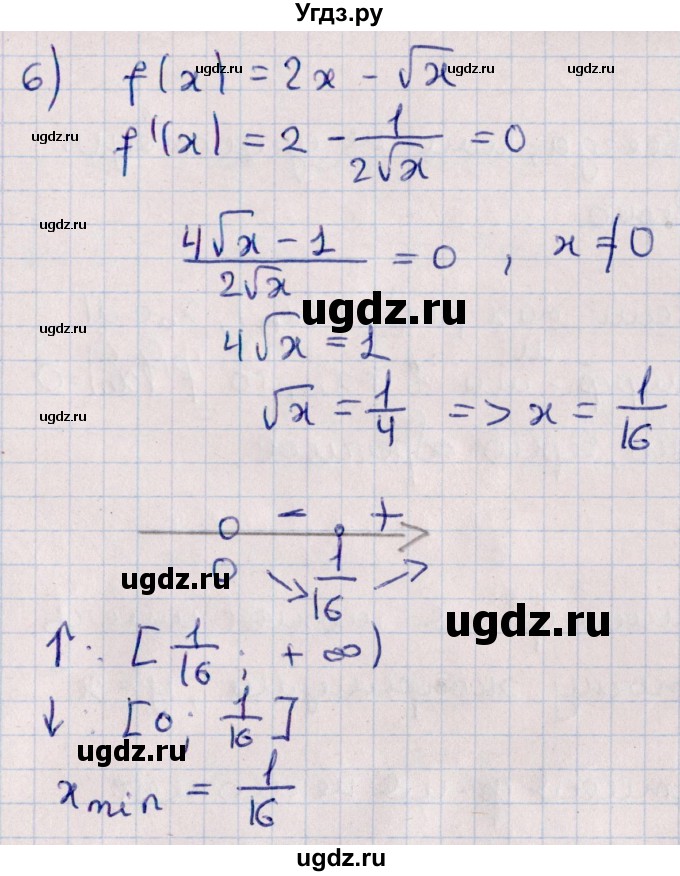 Угдз.ру
6) f(x) = 2x - √x
ugdz.ru ugdz.ru ugdz.ru
f'(x) = 2 - 1/(2√x) = 0
ugdz.ru
(4√x - 1)/(2√x) = 0 , x ≠ 0
ugdz.ru
ugdz.ru
4√x = 1
ugdz.ru
√x = 1/4 => x = 1/16
ugdz.ru
0 - +
0 ↘ 1/16 ↗
ugdz.ru
ugdz.ru
↑: [1/16; +∞)
↓: [0; 1/16]
ugdz.ru
x min = 1/16
ugdz.ru